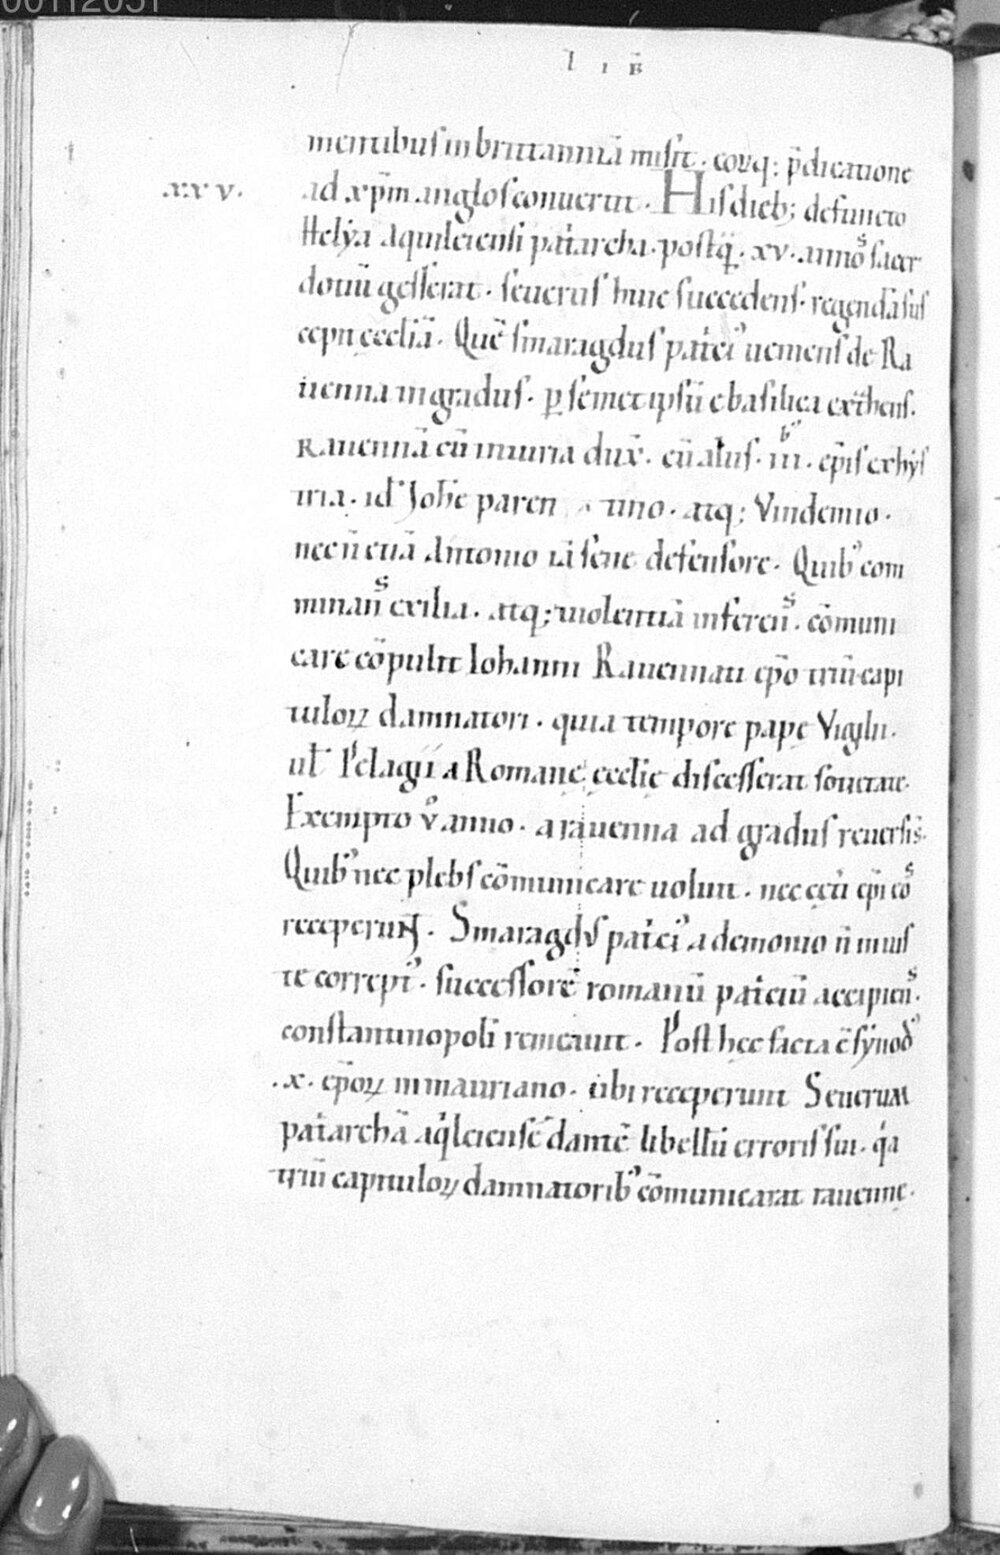 00112051
L I B̄
mentibus in brittanniā misit. eorq; p̄dicatione
xxv.
ad xp̄m anglos conuertit. His dieb; defuncto
Helya aquileiensi pat̄archa. postq̄. xv. annos sacer
dotiū gesserat. seuerus huic succedens. regendā sus
cepit ęcclīā. Quē smaragdus pat̄ci' ueniens de Ra
uenna in gradus. p̱ semet ipsū e basilica ext̄hens.
Rauennā cū iniuria dux̄. cū alt̄is. iii.b' ep̄is ex hys
tria. id' Joh̄e paren tino. atq; Vindemio.
nec n̄ etiā Antonio iā sene defensore. Quib' com
minans̄ exilia. atq; uiolentiā inferens̄. cōmuni
care cōpulit Iohanni Rauennati ep̄o triū capi
tuloꝝ damnatori. qui a tempore pape Vigilii.
ul̄ Pelagii a Romanę ęcclīę discesserat sotietate.
Exempto v̊ anno. a rauenna ad gradus reuersi s̄.
Quib' nec plebs cōmunicare uoluit. nec cet̄i ep̄i eos
receperunt. Smaragdus pat̄ci' a demonio n̄ inius
te corrept'. successorē romanū pat̄ciū accipiens̄.
constantinopoli remeauit. Post hec facta ē synod'
.x. ep̄oꝝ in mauriano. ubi receperunt Seuerum
pat̄archā aq̄leiensē dantē libellū erroris sui. q̄a
triū capituloꝝ damnatorib' cōmunicarat rauennę.